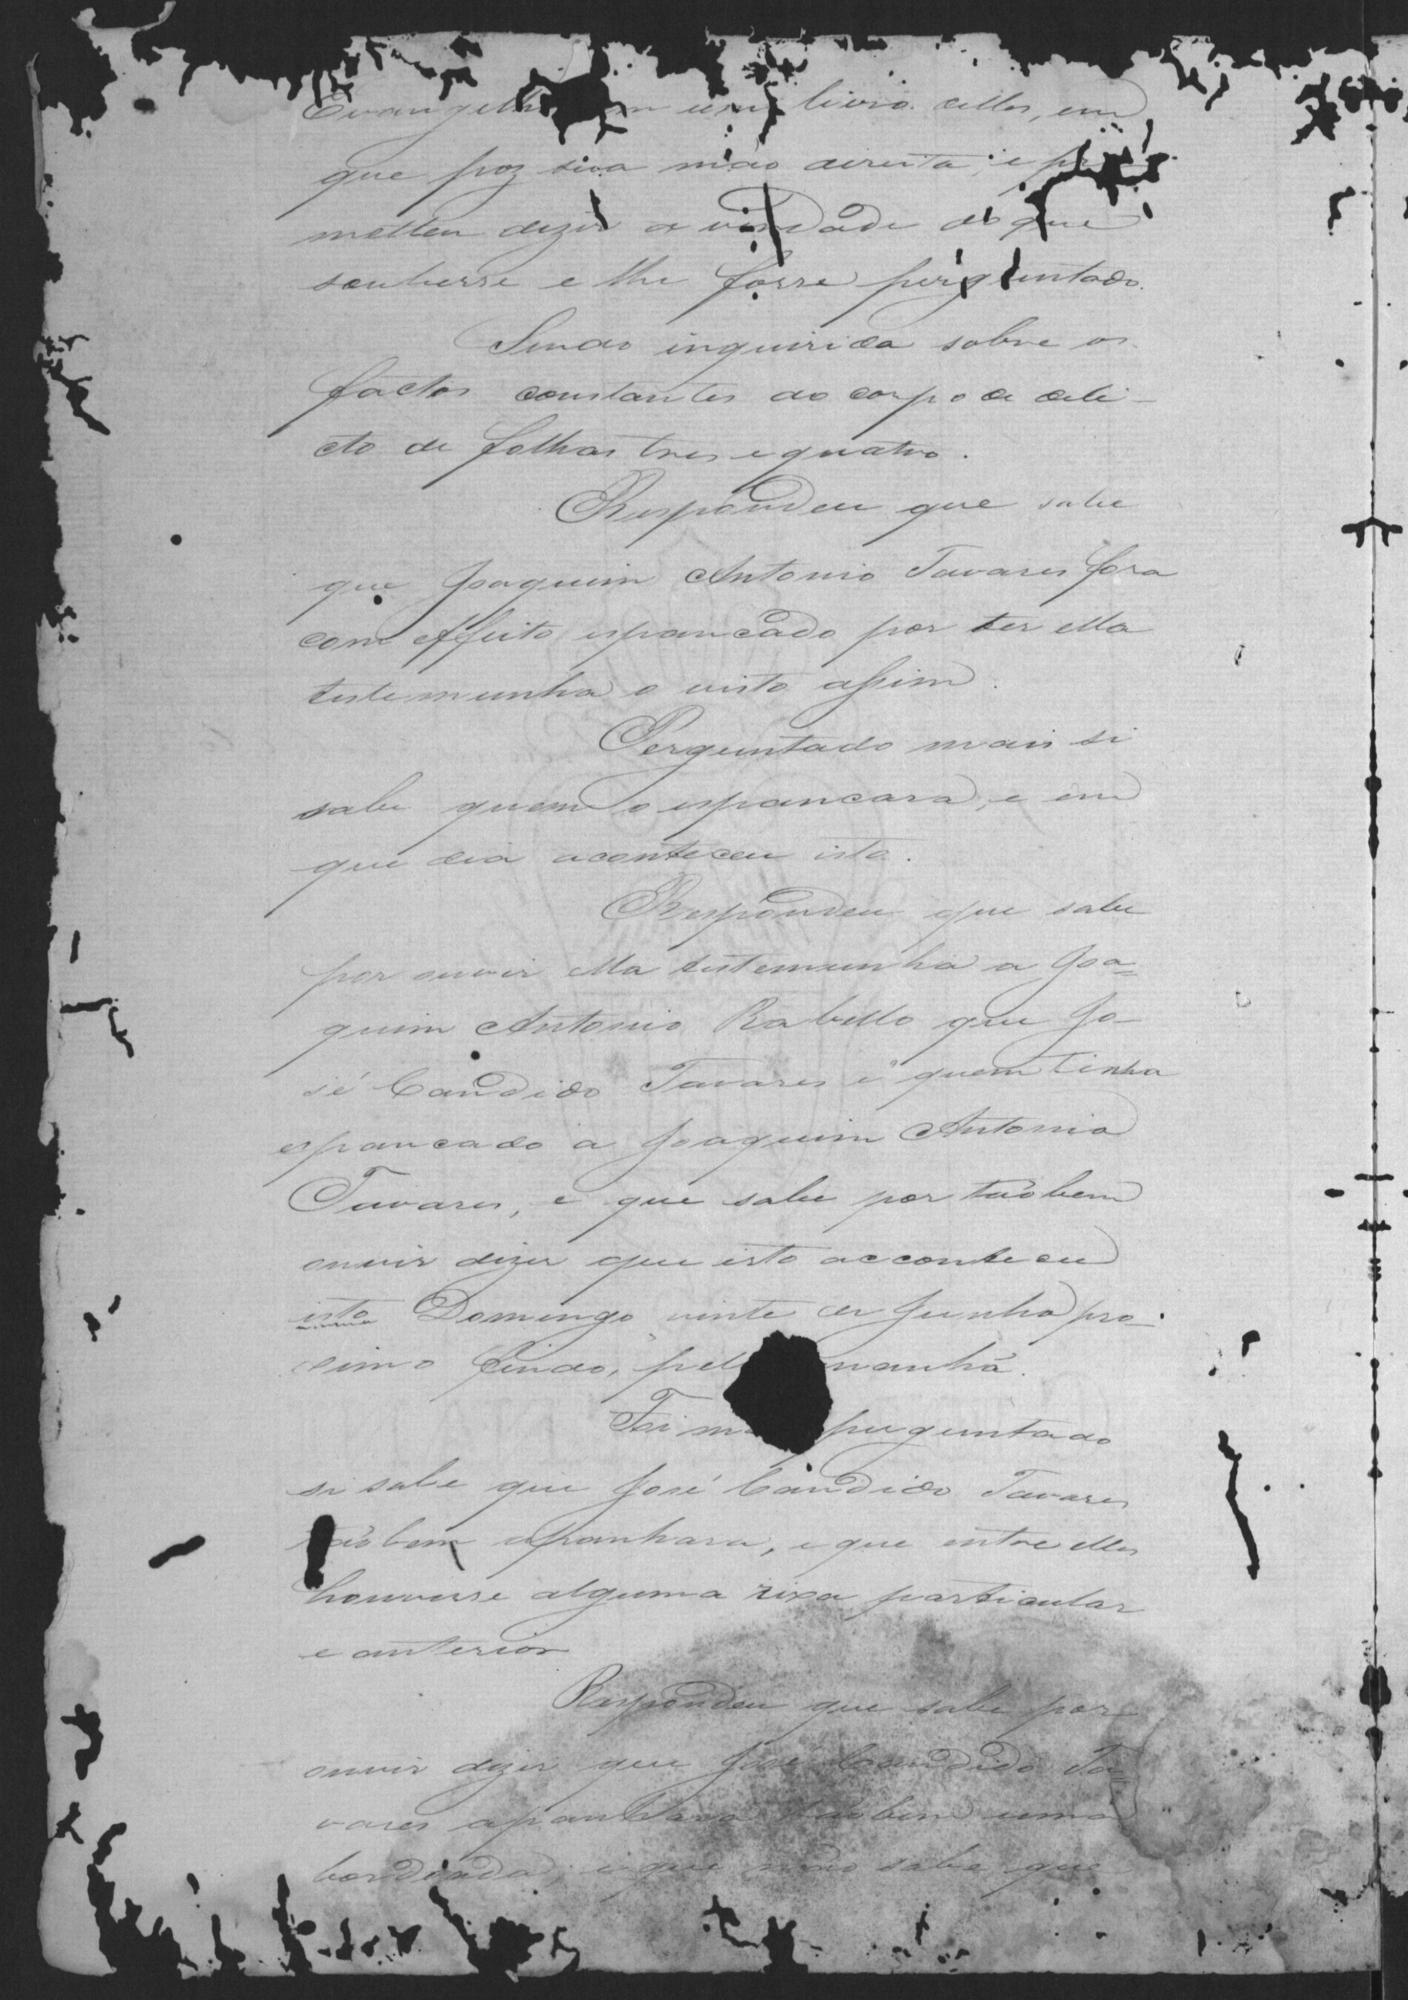 Evangelhos em um livro delles, em
que poz sua mão direita; e pro
metteu dizer a verdade do que
soubesse e lhe fosse perguntado.
Sendo inquirida sobre os
factos constantes do corpo de deli-
cto de folhas tres e quatro.
Respondeu que sabe
que Joaquim Antonio Tavares fora
com effeito espancado por ter ella
testemunha o visto assim.
Perguntado mais si
sabe quem o espancara, e em
que dia aconteceu isto.
Respondeu que sabe
por ouvir ella testemunha a Joa=
quim Antonio Rabello que Jo-
sé Candido Tavares é quem tinha
espancado a Joaquim Antonio
Tavares, e que sabe por tãobem
ouvir dizer que isto acconteceu
isto Domingo vinte de Junho pro-
ximo findo, pela manhã.
Foi mais perguntado
si sabe que José Candido Tavares
tãobem apanhara, e que entre elles
houvesse alguma rixa particular
e anterior
Respondeu que sabe por
ouvir dizer que José Candido Ta=
vares apanhara tãobem uma
bordoada, e que não sabe que